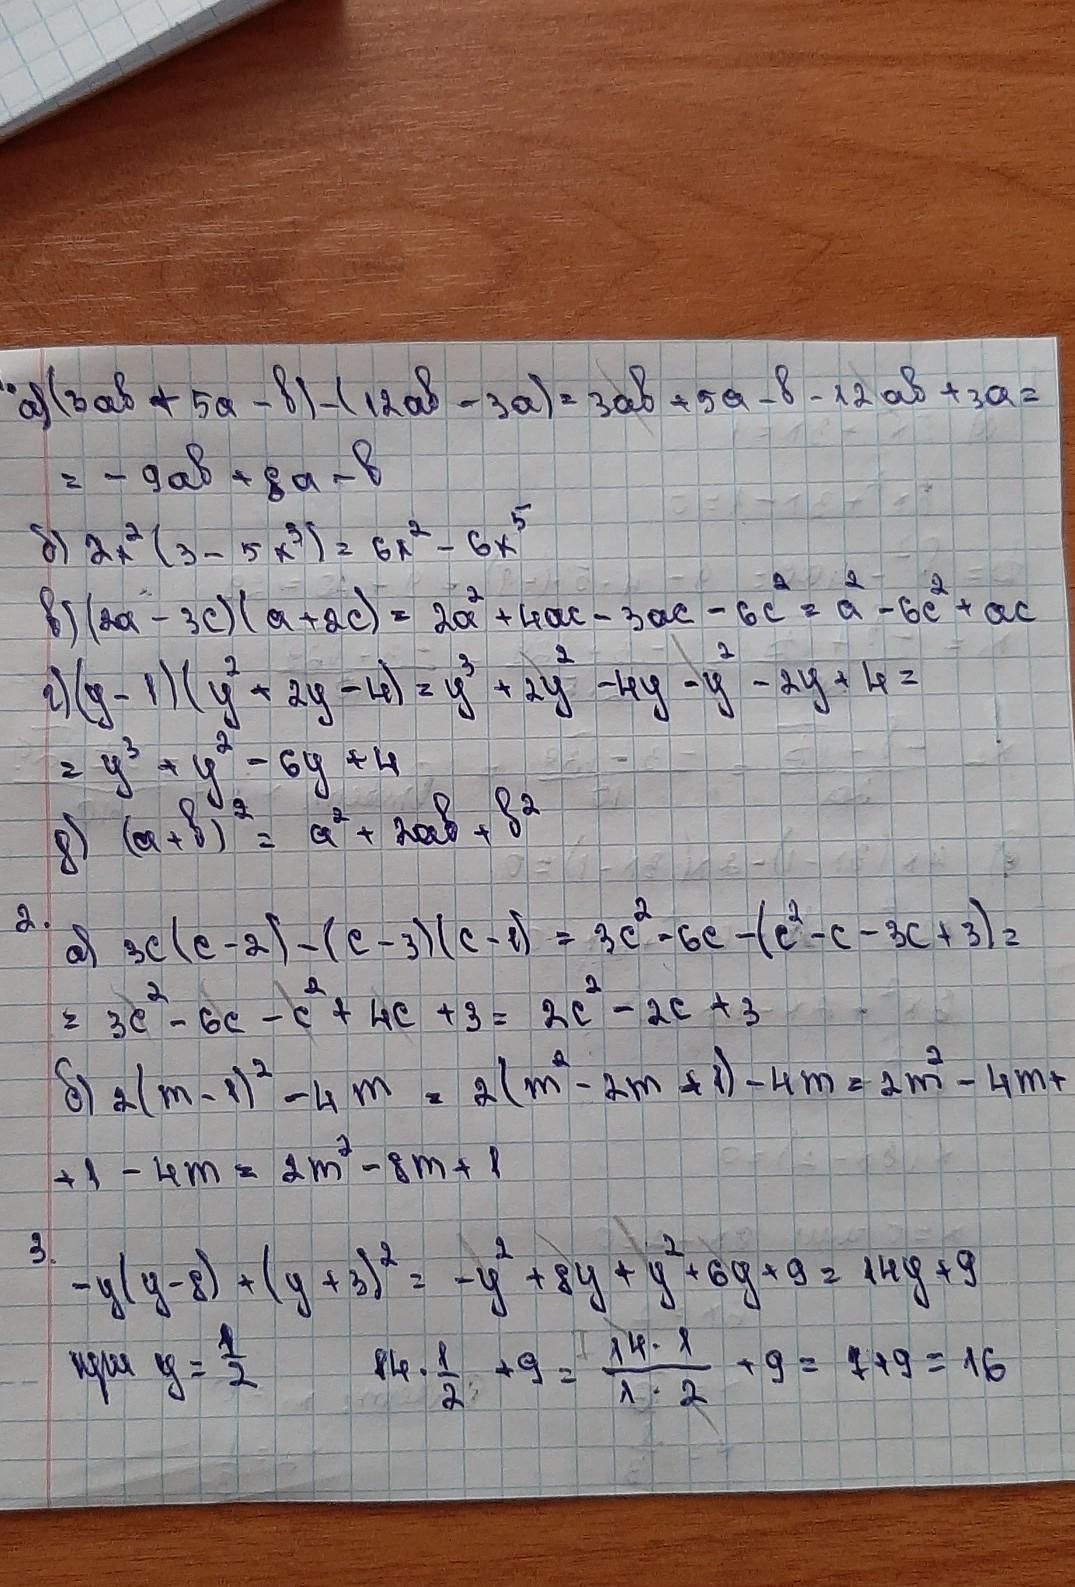 а) (3ab + 5a - b) - (12ab - 3a) = 3ab + 5a - b - 12ab + 3a =
= - 9ab + 8a - b
б) 2x² (3 - 5x³) = 6x² - 6x⁵
в) (2a - 3c) (a + 2c) = 2a² + 4ac - 3ac - 6c² = a² - 6c² + ac
г) (y - 1) (y² + 2y - 4) = y³ + 2y² - 4y - y² - 2y + 4 =
= y³ + y² - 6y + 4
д) (a + b)² = a² + 2ab + b²
2.
а) 3c (c - 2) - (c - 3) (c - 1) = 3c² - 6c - (c² - c - 3c + 3) =
= 3c² - 6c - c² + 4c + 3 = 2c² - 2c + 3
б) 2 (m - 1)² - 4m = 2 (m² - 2m + 1) - 4m = 2m² - 4m +
+ 1 - 4m = 2m² - 8m + 1
3.
- y (y - 8) + (y + 3)² = - y² + 8y + y² + 6y + 9 = 14y + 9
при y = 1/2 14 · 1/2 + 9 = 14 · 1 / 1 · 2 + 9 = 7 + 9 = 16